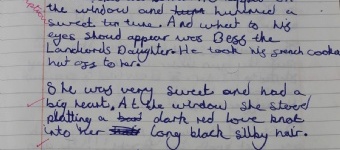 the window and hummed a
sweet ton tune. And what to his
eyes shoud appear was Bess the
Landlords Daughter. He took his french cocka
hat off to her.
She was very sweet and had a
big heart. At the window she stood
platting a dark red love knot
into her long black silky hair.